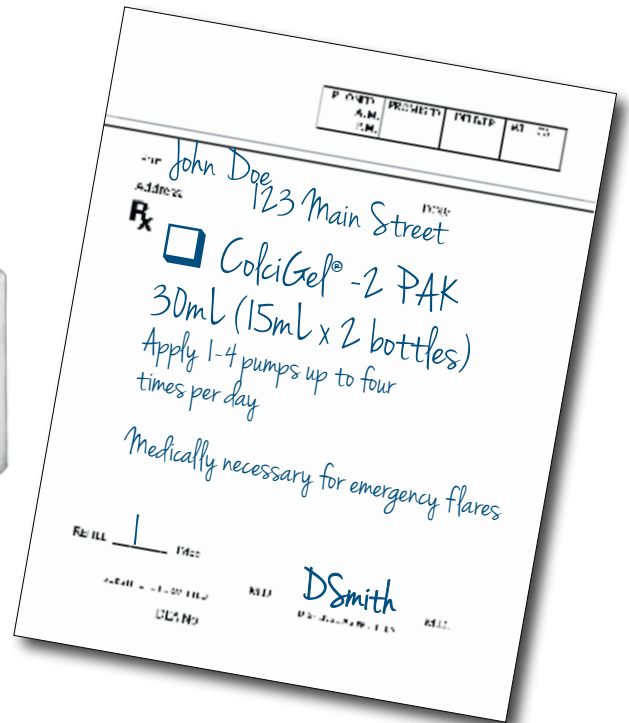 A.M.
P.M.
John Doe
Address 123 Main Street
Rx
ColciGel® -2 PAK
30mL (15mL x 2 bottles)
Apply 1-4 pumps up to four
times per day
Medically necessary for emergency flares
REFILL 1
DSmith